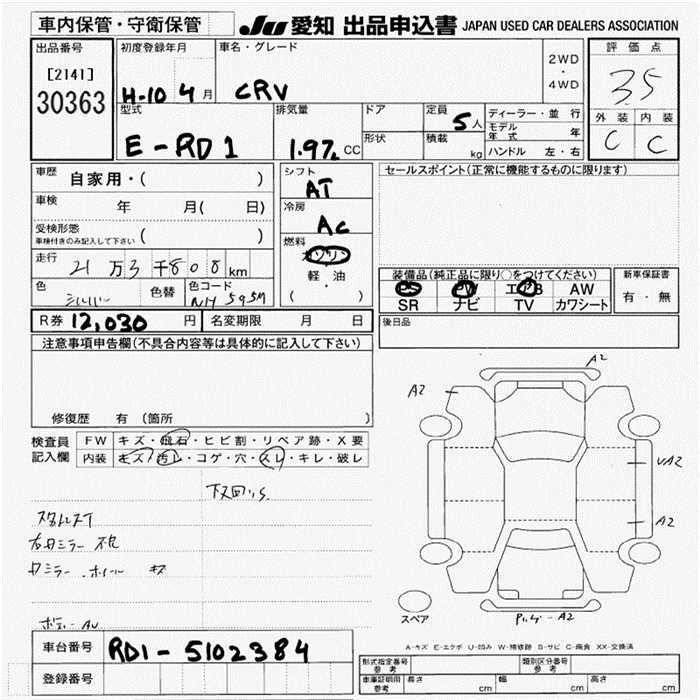 車内保管・守衛保管
JU 愛知 出品申込書 JAPAN USED CAR DEALERS ASSOCIATION
出品番号
[2141]
30363
初度登録年月
H-10 4 月
車名・グレード
CRV
2WD
・
4WD
評価点
3.5
外装 内装
C C
型式
E-RD1
排気量
1.97 CC
ドア
形状
定員
5人
積載
kg
ディーラー・並行
モデル年式 年
ハンドル 左・右
車歴
自家用・( )
車検
年 月( 日)
受検形態
車検付きのみ記入して下さい ( )
走行
21万3千808km
色
シルバー
色替
色コード
NH595M
シフト
AT
冷房
AC
燃料
ガソリン
軽・油
( )
セールスポイント(正常に機能するものに限ります)
装備品(純正品に限り○をつけてください)
PS PW エアB AW
SR ナビ TV カワシート
新車保証書
有・無
R券 12,030 円
名変期限 月 日
後日品
注意事項申告欄(不具合内容等は具体的に記入して下さい)
修復歴 有(箇所 )
検査員
記入欄
FW キズ・飛石・ヒビ割・リペア跡・X要
内装 キズ・汚レ・コゲ・穴・スレ・キレ・破レ
スタッドレス
右ドアミラー
ドアミラー、ホイール キズ
ボディーAU
A2
A2
UA2
A2
A2
スペア
A-キズ E-エクボ U-凹み W-補修跡 S-サビ C-腐食 XX-交換済
車台番号
RD1-5102384
登録番号
形式指定番号
参考
類別区分番号
参考
車庫証明用
参考
長さ cm
幅 cm
高さ cm